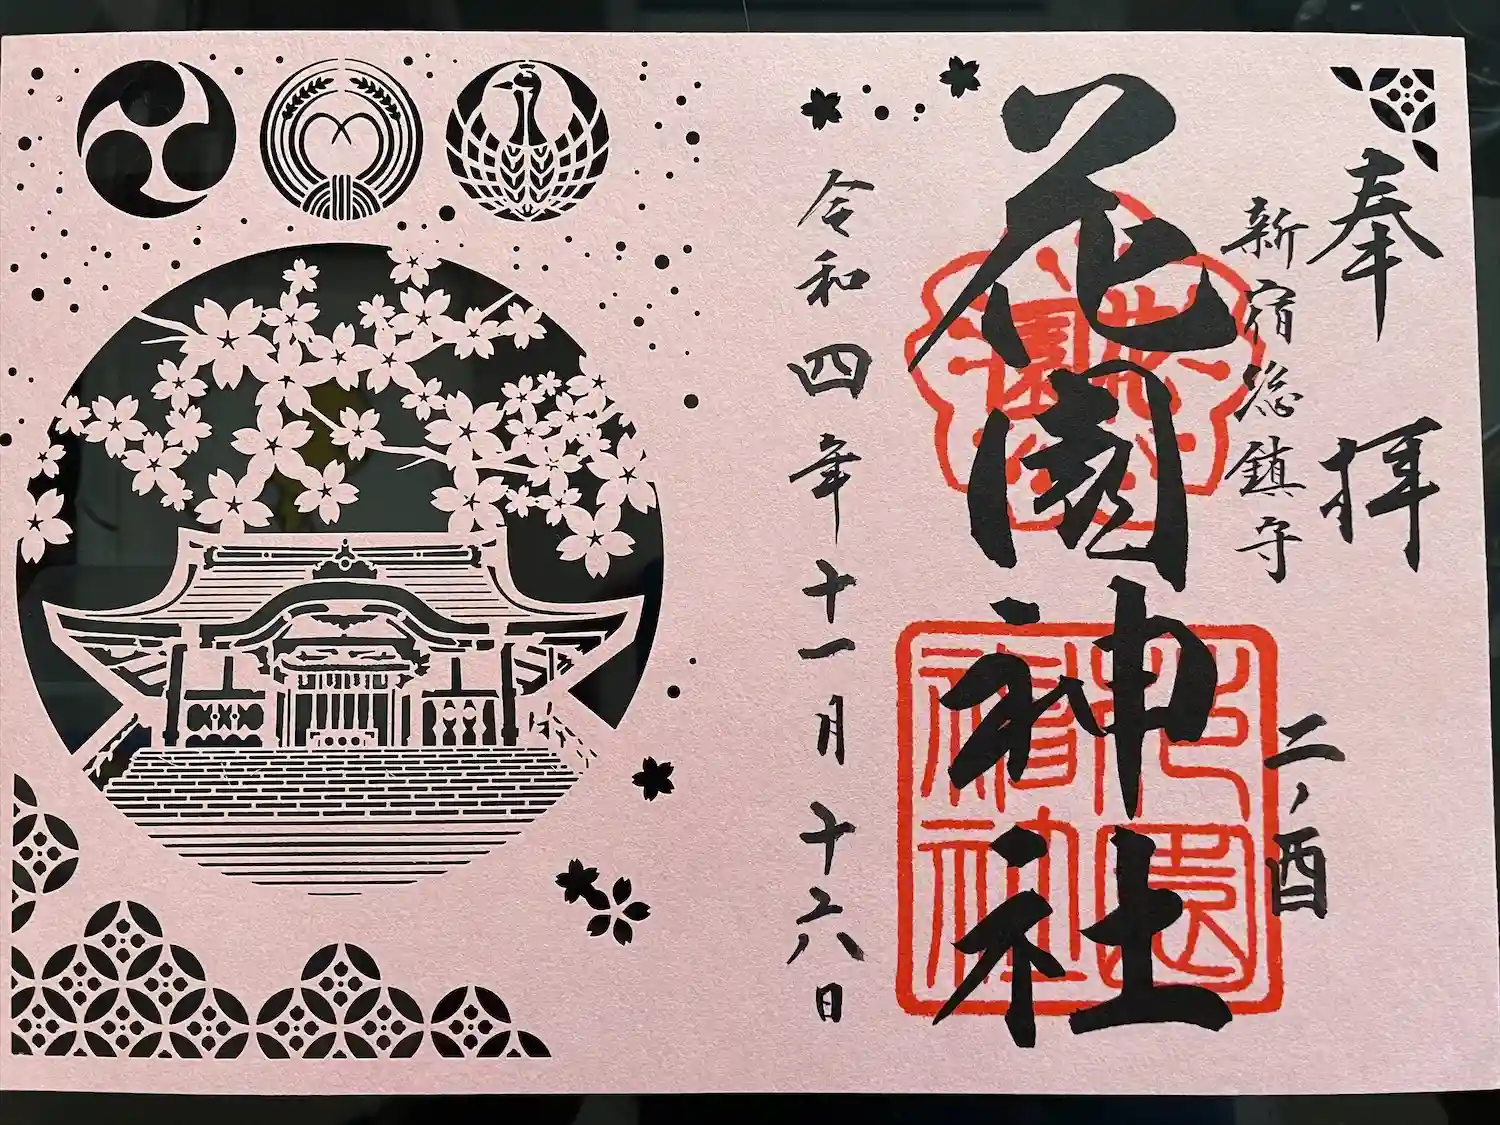 奉拝
新宿総鎮守
二ノ酉
花園神社
令和四年十一月十六日
花園
花園神社